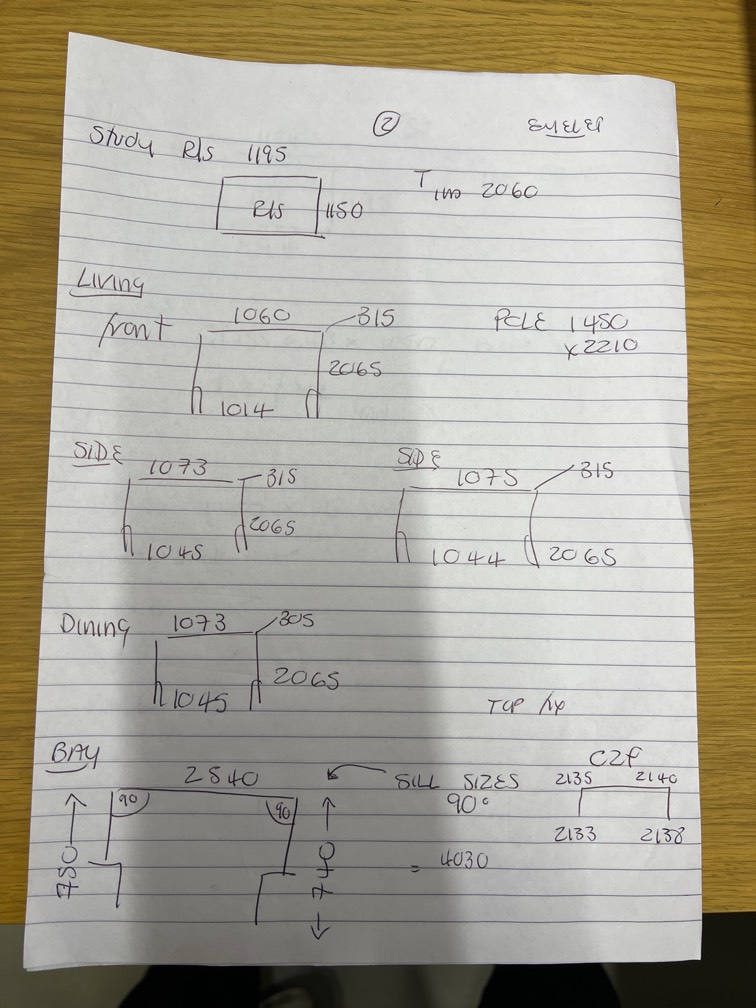 ② EYELET
Study R/S 1195
R/S 1150
2060
LIVING
front 1060 315 POLE 1450
x2210
2065
1014
SIDE SIDE
1073 315 1075 315
2065
1045 1044 2065
Dining 1073 305
1045 2065
TOP
BAY C2F
2540 SILL SIZES 2135 2140
90 90 90°
750 740 2133 2138
= 4030